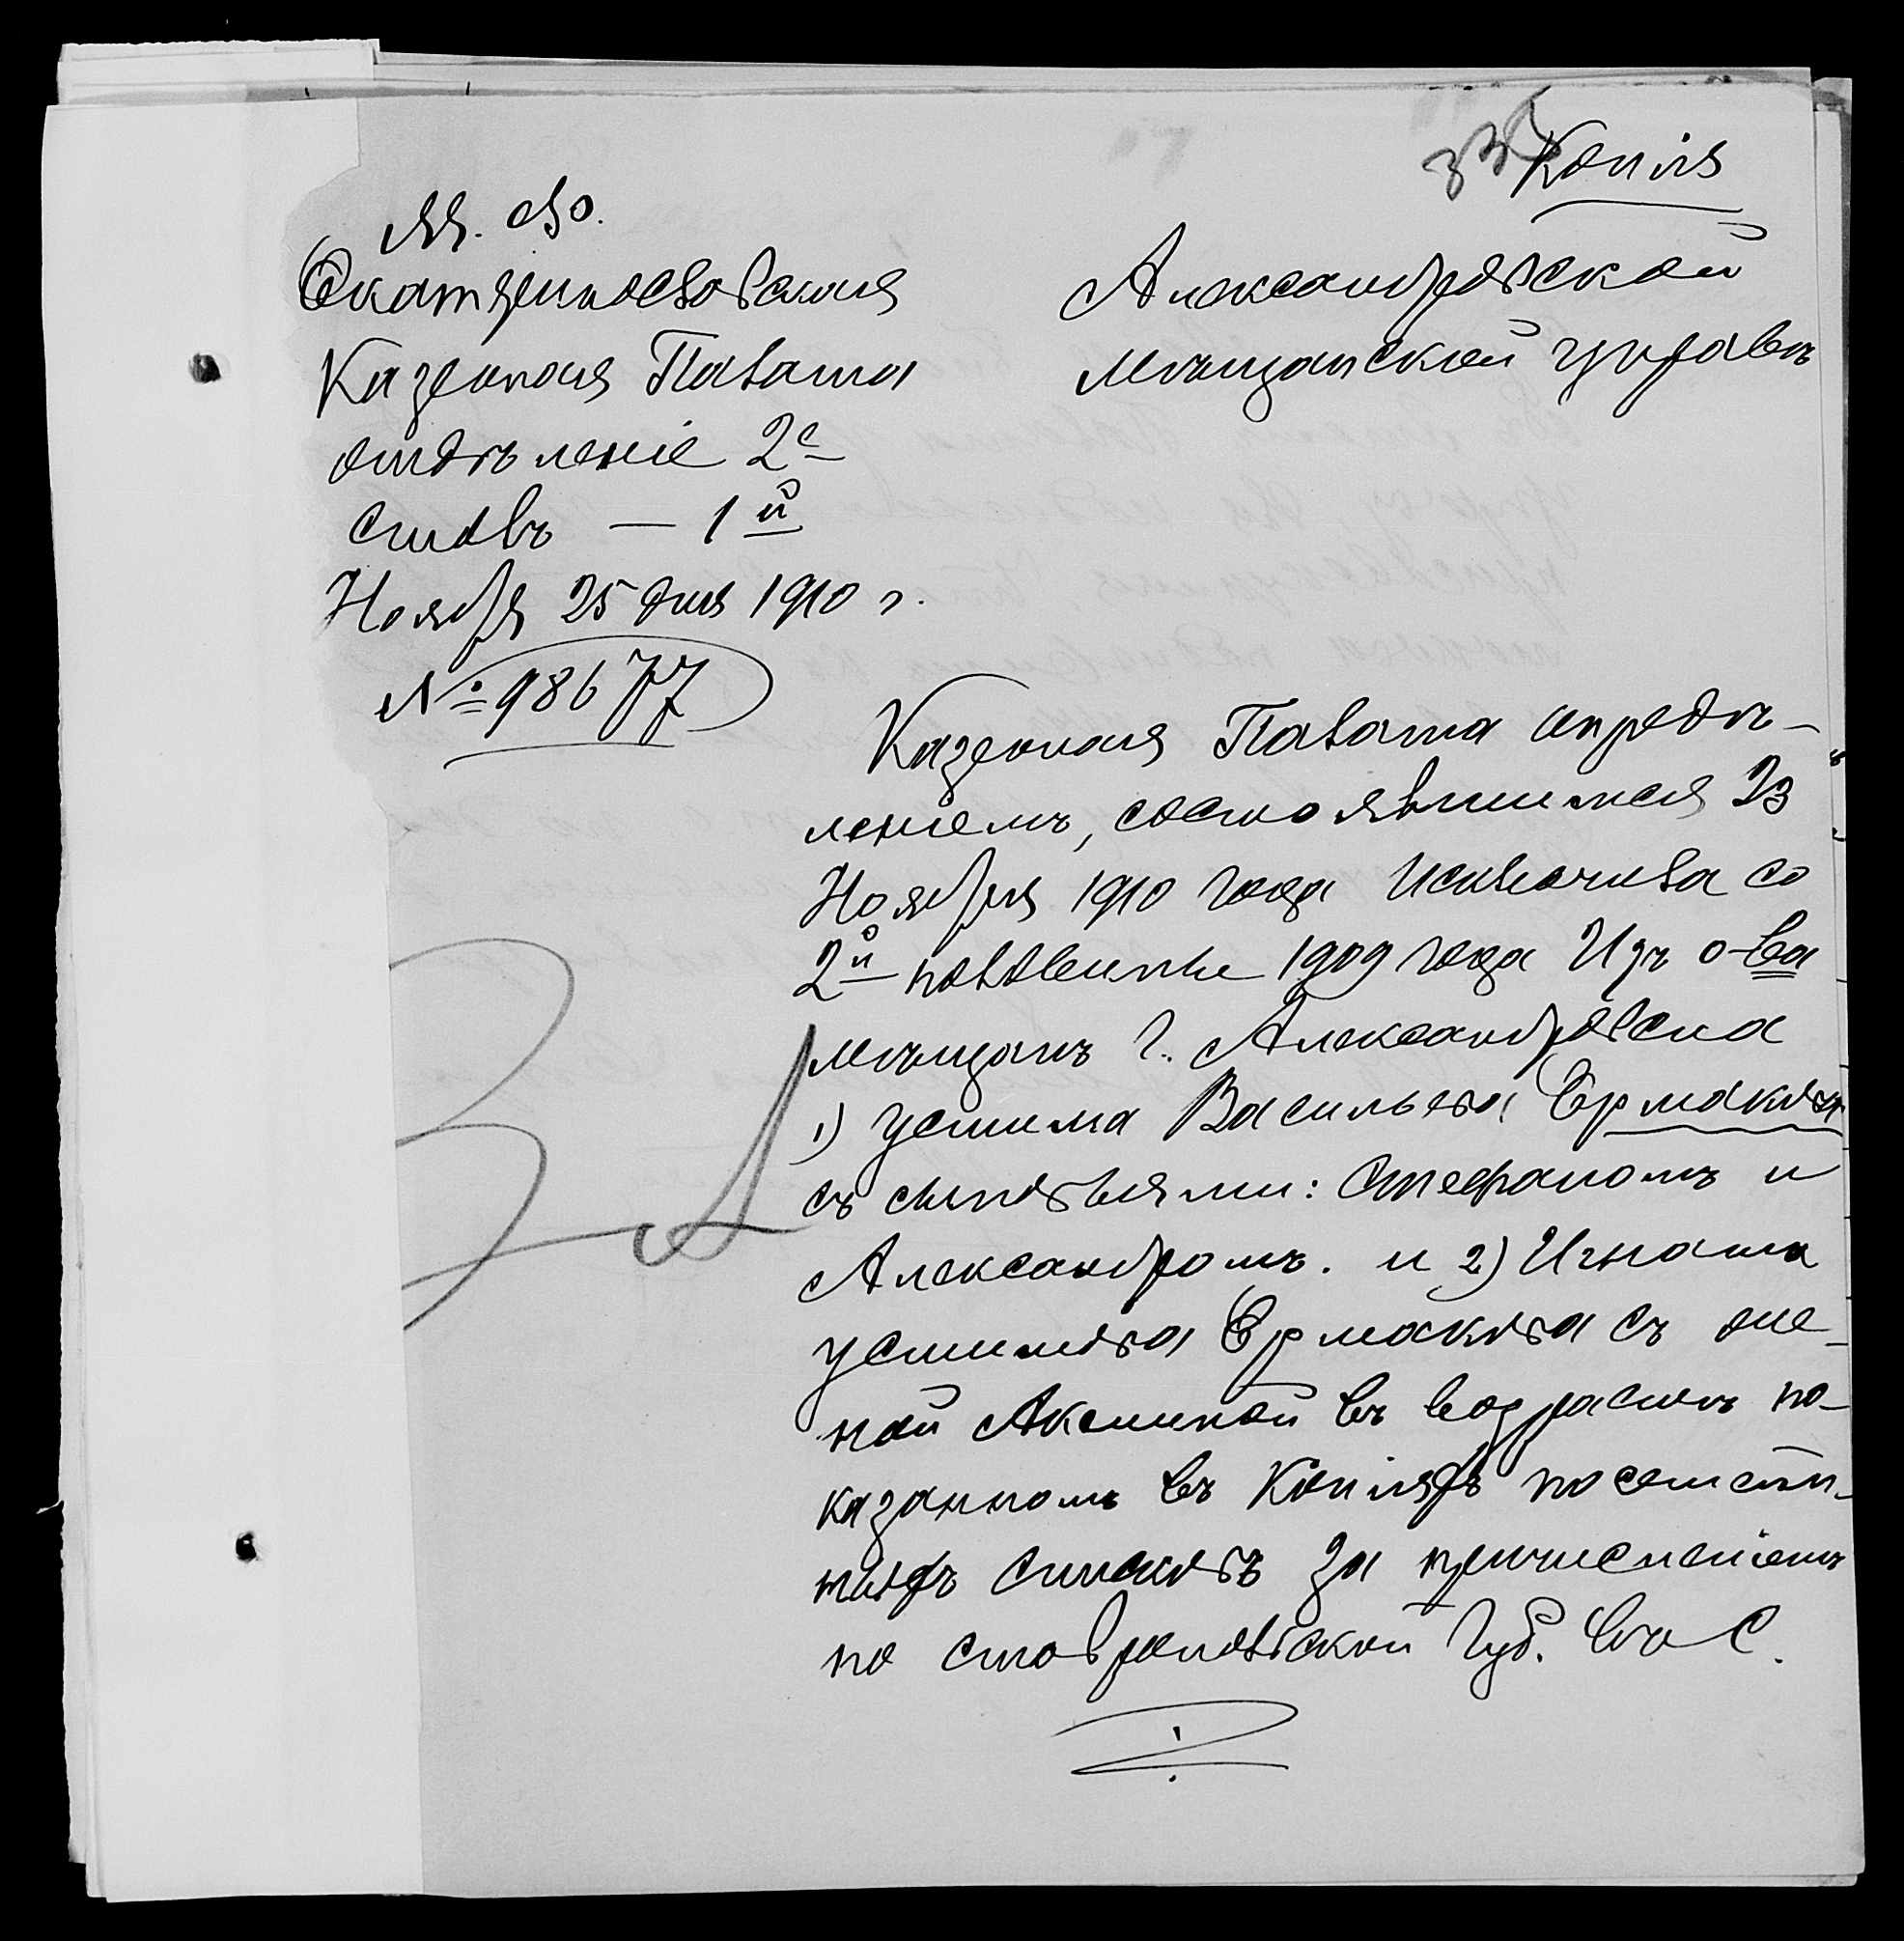 Копія
М. Ф.
Екатеринославская
Казенная Палата
отдѣленіе 2е
столъ — 1й
Ноября 25 дня 1910 г.
№ 98677
Александровской
мѣщанской управѣ
Казенная Палата опредѣ-
леніемъ, состоявшимся 23
Ноября 1910 года исключила со
2й половины 1909 года изъ о-ва
мѣщанъ г. Александровска
1) Устима Васильева Ермакова
съ сыновьями: Стефаномъ и
Александромъ. и 2) Игната
Устимова Ермакова съ же-
ной Аксиньей въ возрастѣ по-
казанномъ въ копіяхъ посемей-
ныхъ списковъ за причисленіемъ
по Ставропольской Губ. въ С.